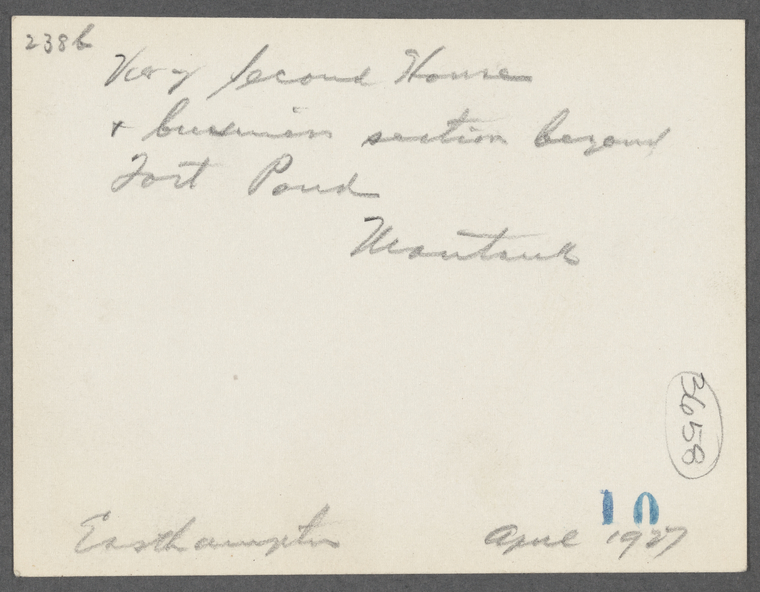 238b
Second House
+ business section beyond
Fort Pond
Montauk
3658
10
Easthampton April 1927